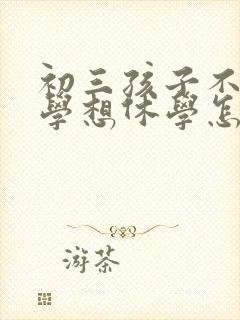 初三孩子不
學想休學怎
游茶